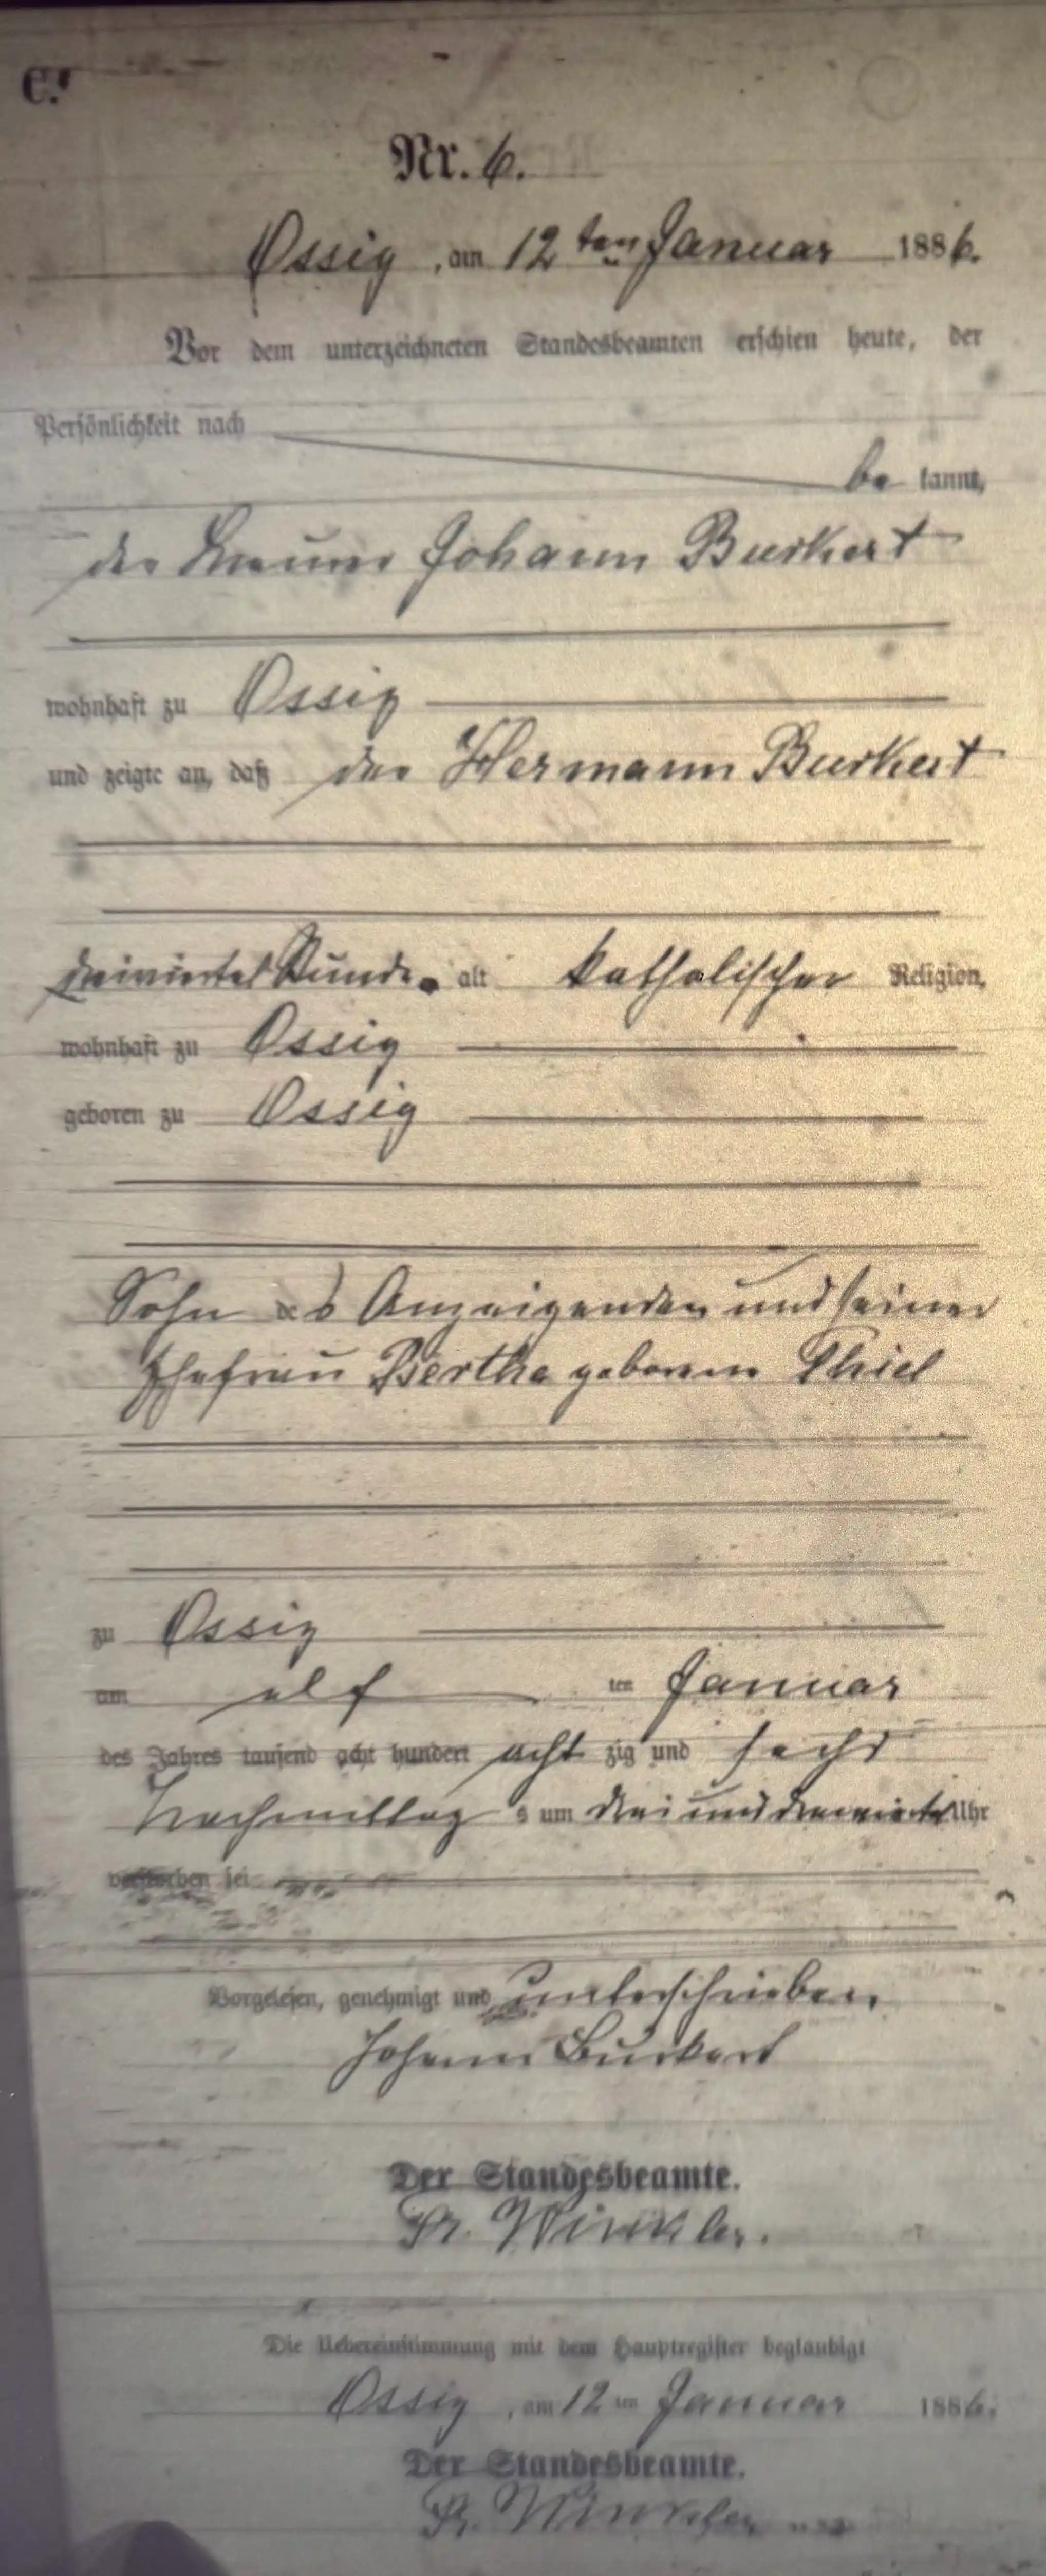 C.
Nr. 6.
Ossig, am 12ten Januar 1886.
Vor dem unterzeichneten Standesbeamten erschien heute, der
Persönlichkeit nach
be kannt,
der Johann Burkert
wohnhaft zu Ossig
und zeigte an, daß der Hermann Burkert
dreiviertel Stunde alt katholischer Religion,
wohnhaft zu Ossig
geboren zu Ossig
Sohn des Anzeigenden und seiner
Ehefrau Bertha geborene Thiel
zu Ossig
am elf ten Januar
des Jahres tausend acht hundert acht zig und sechs
Nachmittag s um drei und dreiviertel Uhr
verstorben sei
Vorgelesen, genehmigt und unterschrieben.
Johann Burkert
Der Standesbeamte.
Winkler.
Die Uebereinstimmung mit dem Hauptregister beglaubigt
Ossig, am 12ten Januar 1886.
Der Standesbeamte.
Winkler